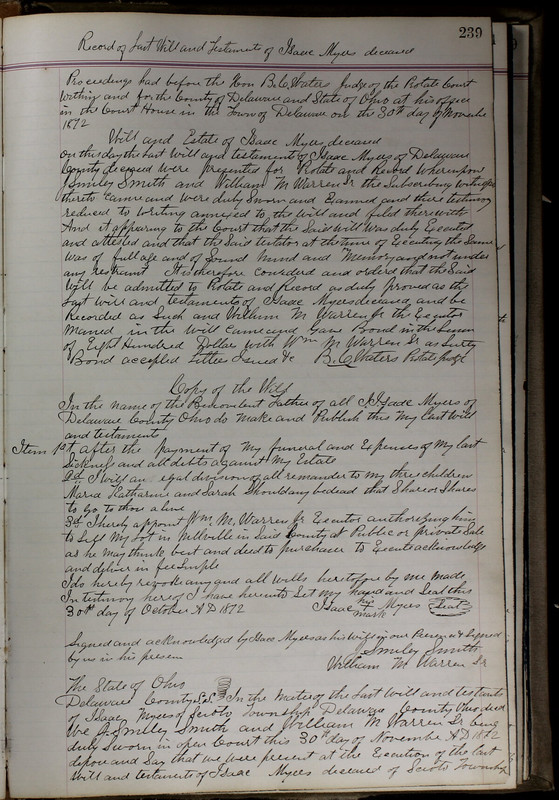 239
Record of Last Will and Testament of Isaac Myers deceased
Proceedings had before the Hon B.C. Waters Judge of the Probate Court
within and for the County of Delaware and State of Ohio at his office
in the Court House in the Town of Delaware on the 30th day of November
1872
Will and Estate of Isaac Myers deceased
On this day the Last Will and testament of Isaac Myers of Delaware
County deceased were presented for Probate and Record Whereupon
J Smiley Smith and William M Warren Sr the Subscribing Witnesses
thereto came and were duly Sworn and Examined and there testimony
reduced to Writing annexed to the Will and filed therewith
And it appearing to the Court that the Said Will was duly Executed
and attested and that the Said testator at the time of Executing the Same
was of full age and of Sound Mind and Memory and not under
any restraint It is therefore Considered and ordered that the Said
Will be admitted to Probate and Record as duly proved as the
Last Will and testament of Isaac Myers deceased and be
Recorded as Such and William M Warren Jr the Executor
Named in the Will came and Gave Bond in the Sum
of Eight Hundred Dollars with Wm M Warren Sr as Surety
Bond accepted Letters Issued &c B.C. Waters Probate Judge
Copy of the Will
In the name of the Benevolent Father of all I Isaac Myers of
Delaware County Ohio do Make and Publish this My Last Will
and testament
Item 1st after the Payment of My funeral and Expenses of My last
Sickness and all debts against My Estate
2d I will an egal division of all remander to my three children
Maria Katharine and Sarah Should any be dead that Share or Shares
to go to those alive
3d I hereby appoint Wm. M. Warren Jr Executor authorizing him
to Sell My Lot in Bellville in Said County at Public or private Sale
as he may think best and deed to purchaser to Execute acknowledge
and deliver in fee Simple
I do hereby revoke any and all Wills heretofore by me Made
In testimony hereof I have hereunto Set my Hand and Seal this
30th day of October A.D 1872 Isaac his X mark Myers Seal
Signed and acknowledged by Isaac Myers as his Will in our Presence & Signed
by us in his presence
J Smiley Smith
William M Warren Sr
The State of Ohio
Delaware County S.S. In the Matter of the Last Will and testament
of Isaac Myers of Scioto Township Delaware County Ohio decd
We J Smiley Smith and William M Warren Sr being
duly Sworn in open Court this 30th day of November A.D 1872
depose and Say that we were present at the Execution of the last
Will and testament of Isaac Myers deceased of Scioto Township